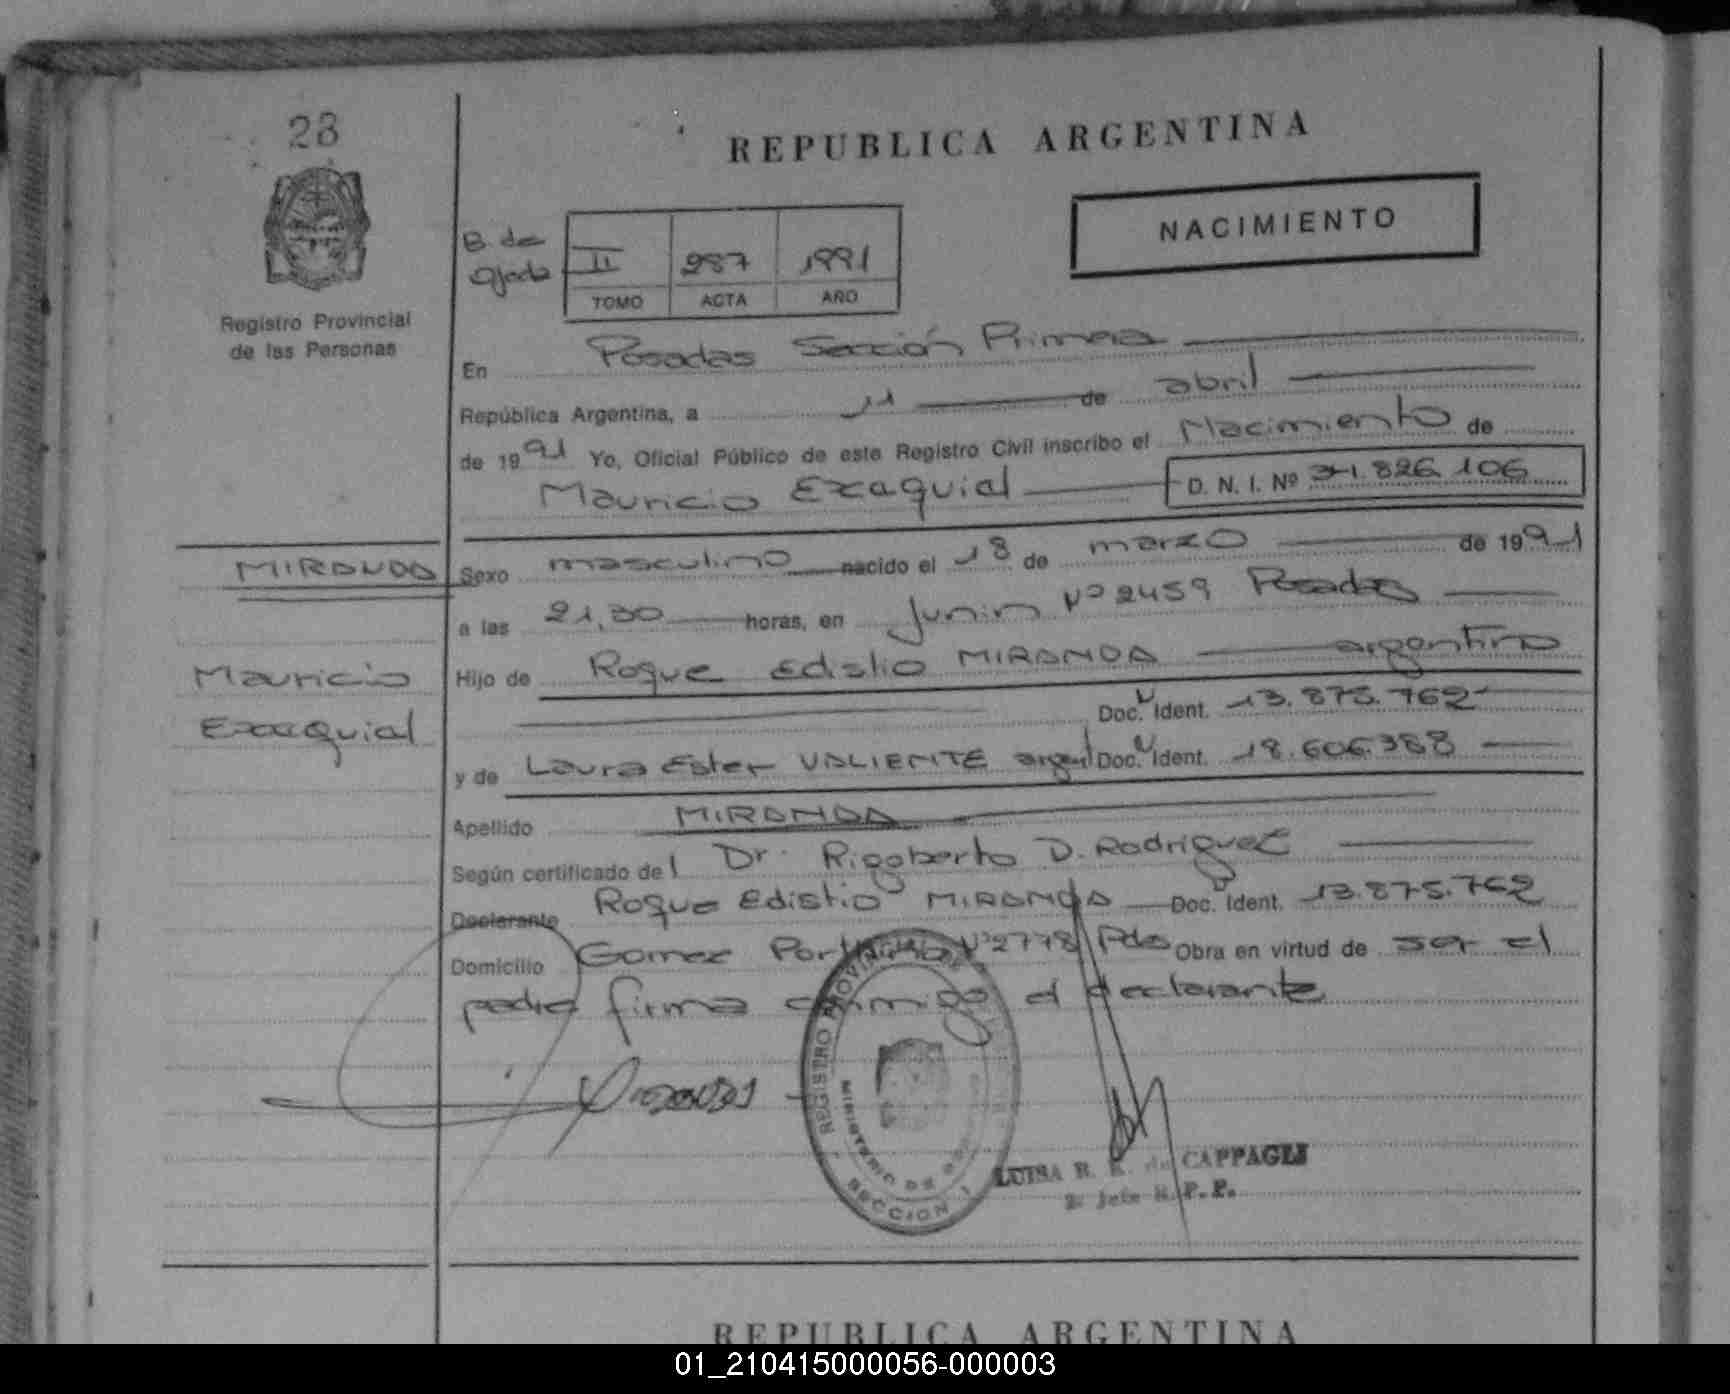 28
REPUBLICA ARGENTINA
NACIMIENTO
B. de
II 287 1991
TOMO ACTA AÑO
Registro Provincial
de las Personas
En Posadas Sección Primera
República Argentina, a 11 de abril
de 1991 Yo, Oficial Público de este Registro Civil inscribo el Nacimiento de
Mauricio Exequiel D. N. I. Nº 34.826.106
MIRANDA
Sexo masculino nacido el 18 de marzo de 1991
a las 21,30 horas, en Junin Nº 2459 Posadas
Mauricio
Exequiel
Hijo de Roque Edistio MIRANDA argentino
Doc. Ident. 13.875.762
y de Laura Ester VALIENTE argent Doc. Ident. 18.606.388
Apellido MIRANDA
Según certificado del Dr. Rigoberto D. Rodriguez
Declarante Roque Edistio MIRANDA Doc. Ident. 13.875.762
Domicilio Gomez Nº 2778 Pdas Obra en virtud de ser el
padre firma conmigo el declarante
REGISTRO PROVINCIAL DE
MINISTERIO DE
SECCION 1
LUISA R. K. de CAPPAGLI
2º Jefe R. P. P.
REPUBLICA ARGENTINA
01_210415000056-000003